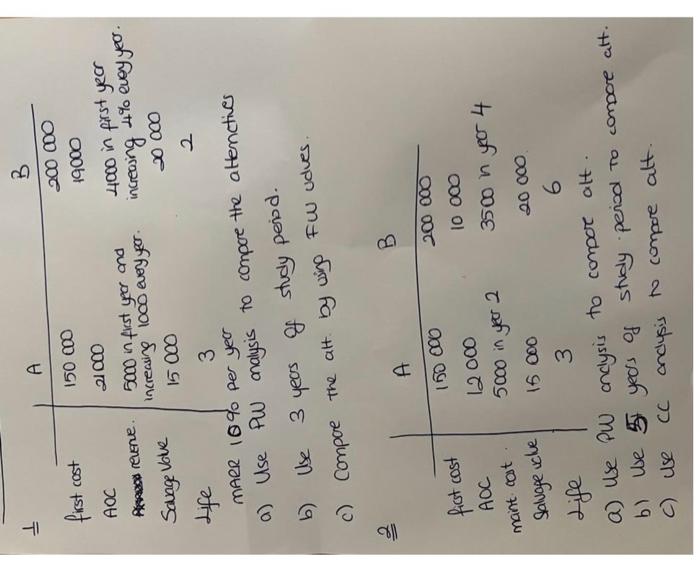 1
A B
first cost 150 000 200 000
AOC 21000 19000
revenue. 5000 in first year and 4000 in first year
increasing 1000 every year. increasing 4% every year.
Salvage Value 15 000 20 000
Life 3 2
MARR 10% per year
a) Use PW analysis to compare the alternatives
b) Use 3 years of study period.
c) Compare the alt. by using FW values.
2
A B
first cost 150 000 200 000
AOC 12 000 10 000
maint. cost. 5000 in year 2 3500 in year 4
Salvage value 15 000 20 000.
Life 3 6
a) Use PW analysis to compare alt.
b) Use 5 years of study period to compare alt.
c) Use CC analysis to compare alt.